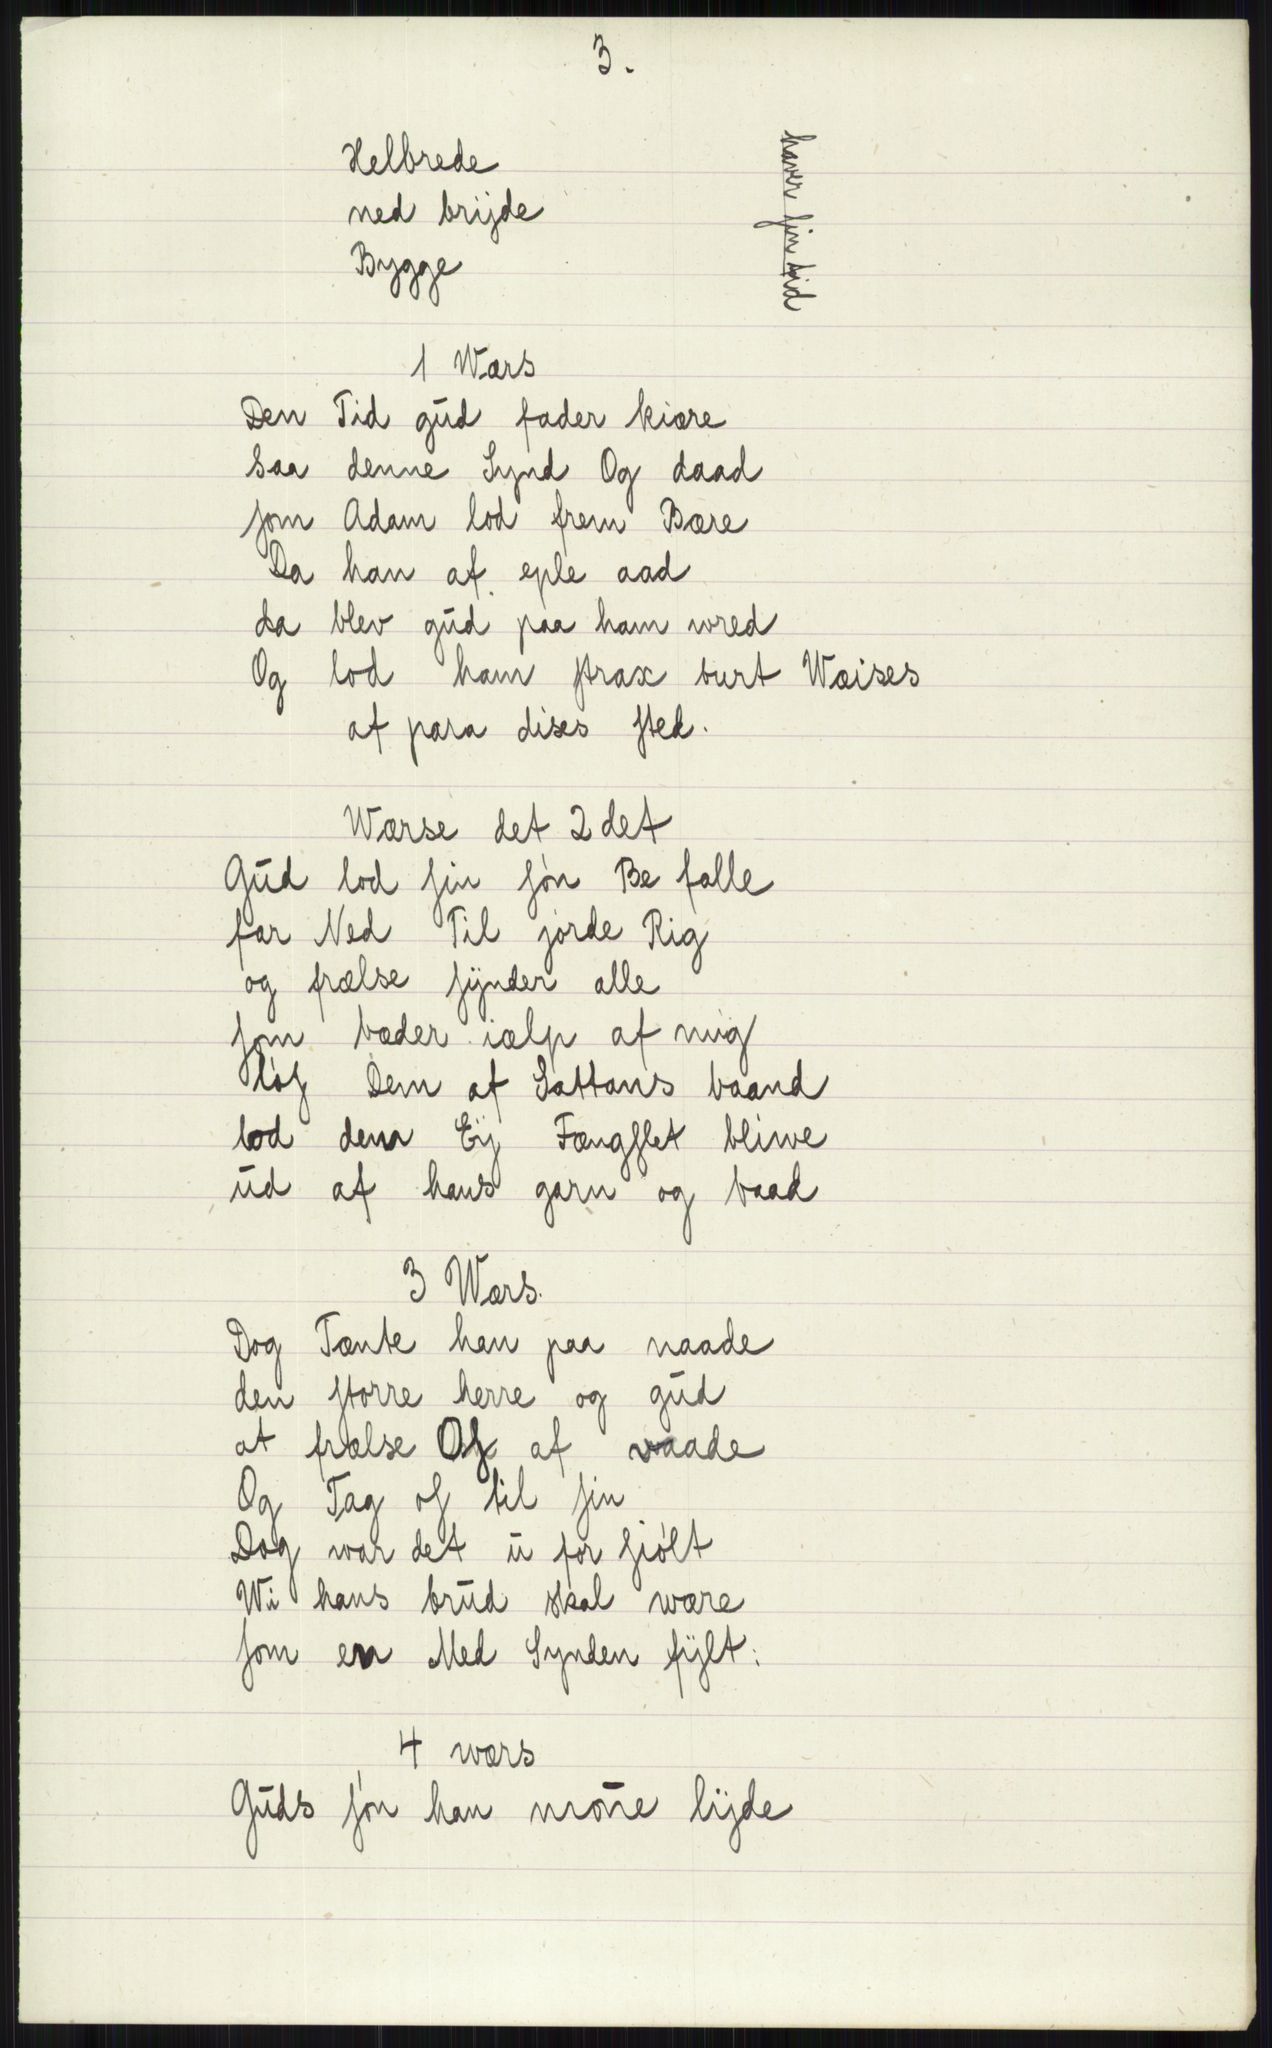 3.
Helbrede
ned brijde
Bygge
haver sin tid
1 Wærs
Den Tid gud fader kiære
Saa denne Synd Og daad
som Adam lod frem Bære
Da han af eple aad
da blev gud paa ham wred
Og lod ham strax burt Wæises
af para dises sted.
Wærse det 2 det
Gud lod sin søn Be falle
far Ned Til jorde Rig
og frælse sÿnder alle
som bæder iælp af mig
løs Dem af Sattans baand
lod dem Eÿ Fængslet bliwe
ud af hans garn og baad
3 Wærs.
Dog Tænte han paa naade
den storre herre og gud
at frælse Os af vaade
Og Tag os til sin
Dog war det u for siølt
Wi hans brud skal wære
som er Med Synden fÿlt:
4 wærs
Guds søn han mone lijde